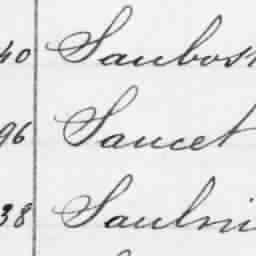 40 Saubos
96 Saucet
38 Saulni